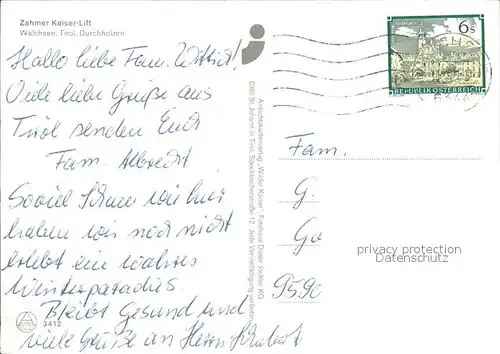 Zahmer Kaiser-Lift
Walchsee, Tirol, Durchholzen
Hallo liebe Fam.
Viele liebe Grüße aus
Tirol senden Euch
Fam. Albrecht
Soviel Schnee wie hier
haben wir noch nicht
erlebt ein wahres
Winterparadies.
Bleibt Gesund und
viele Grüße an Herrn
3412
Ansichtskartenverlag „Wilder Kaiser“ Fotohaus Dieter Jöchler KG
6380 St. Johann in Tirol, Speckbacherstraße 12 Jede Vervielfältigung verboten
6s
REPUBLIK ÖSTERREICH
Fam.
G.
Ga
privacy protection
Datenschutz
9590